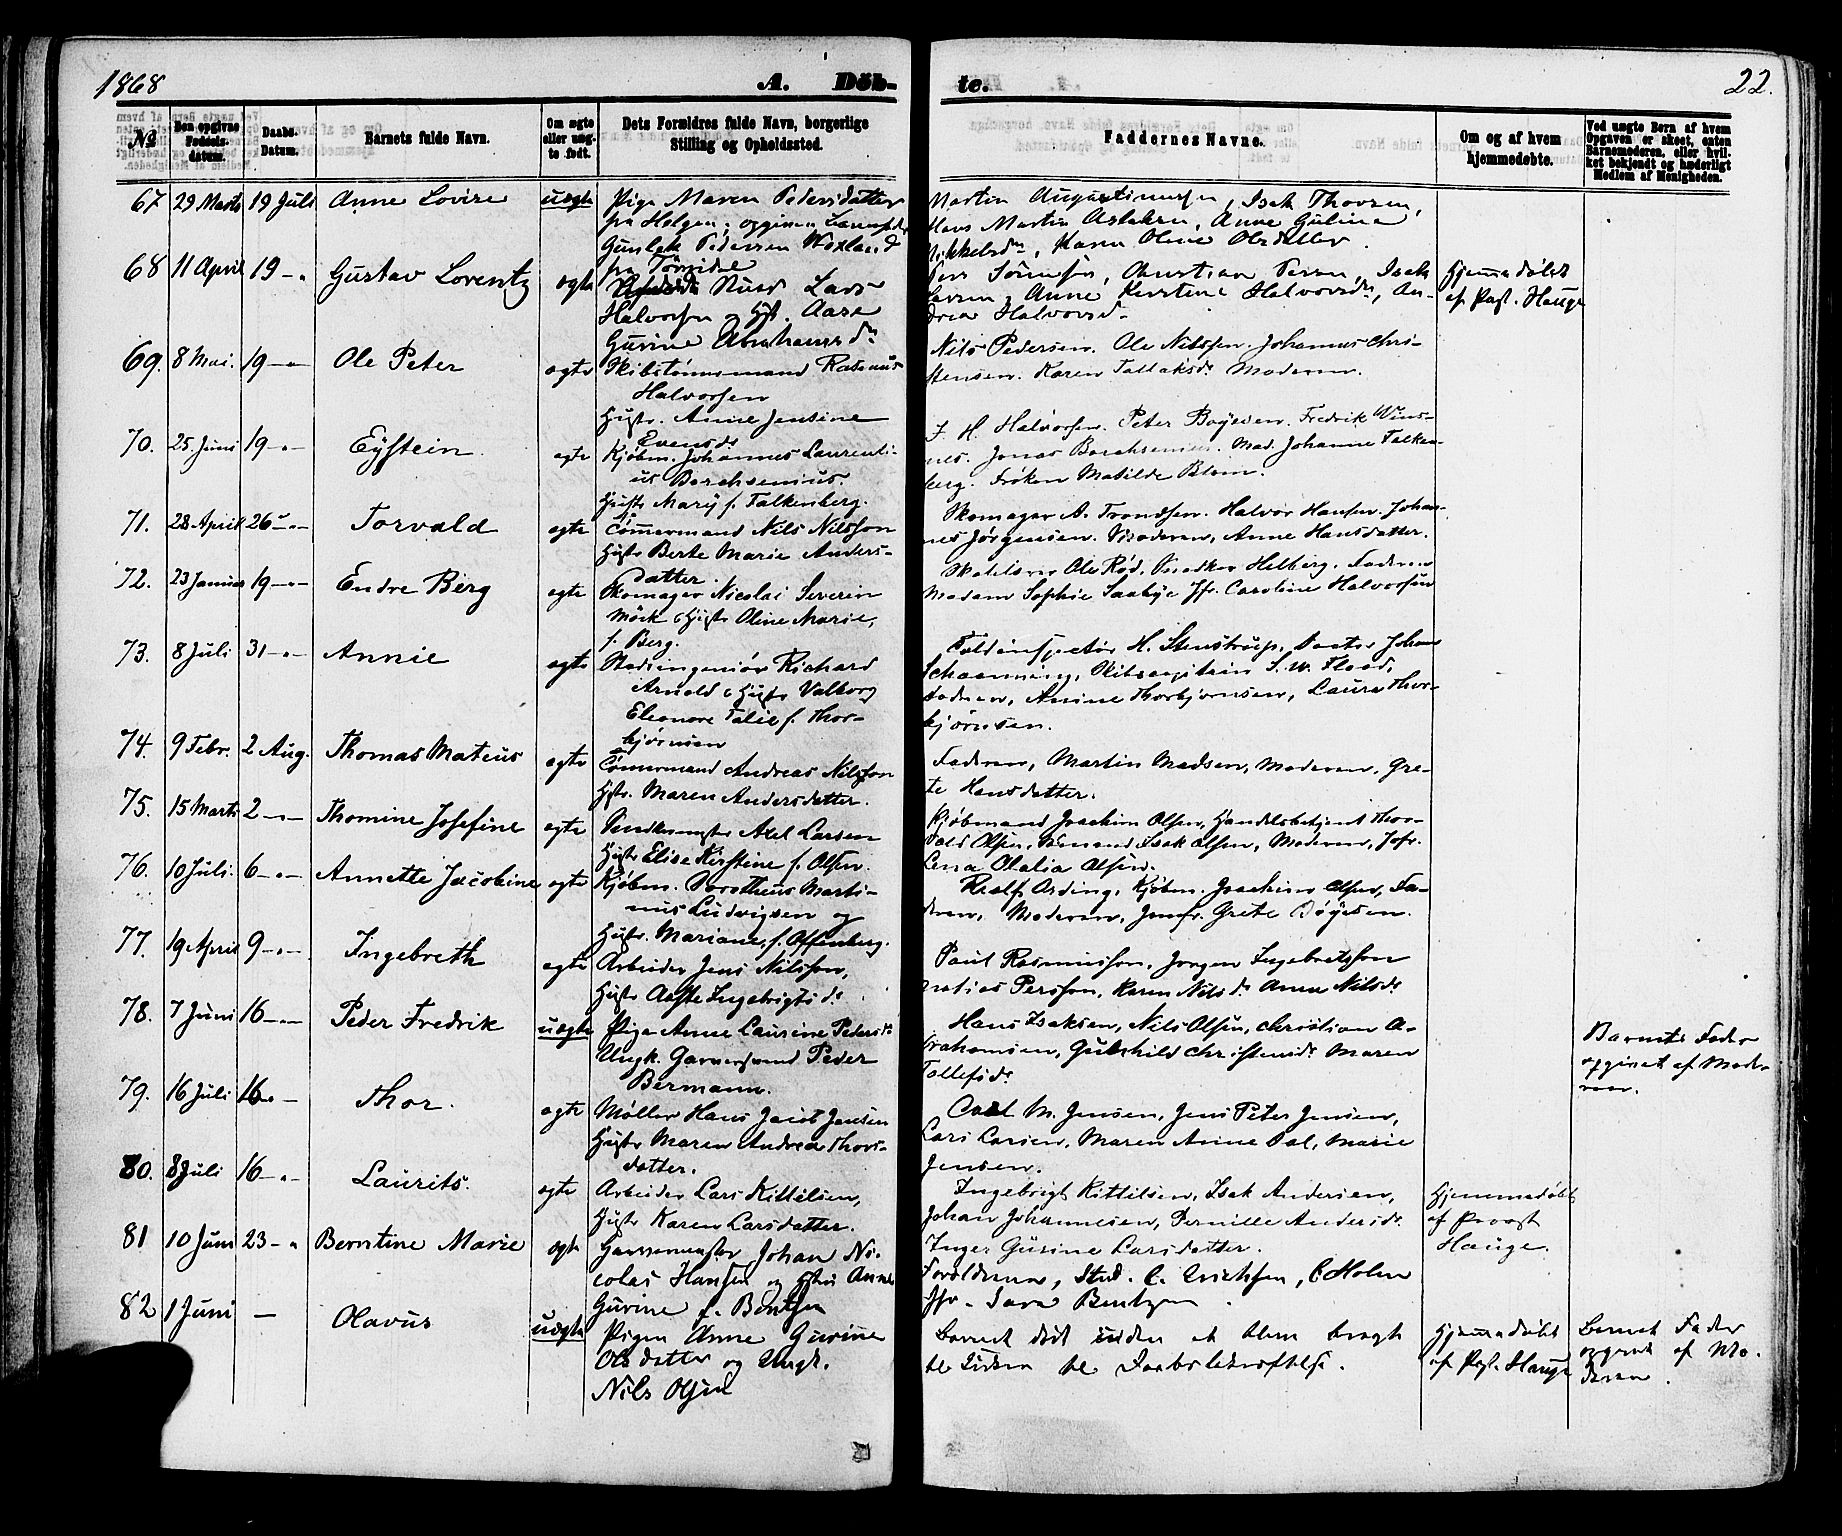 1868
A. Döb-
te.
22.
№
Den opgivne Fødsels-datum.
Daabs-Datum.
Barnets fulde Navn.
Om ægte eller uægte født.
Dets Forældres fulde Navn, borgerlige Stilling og Opholdssted.
Faddernes Navne.
Om og af hvem hjemmedøbte.
Ved uægte Børn af hvem Opgaven er skeet, enten Barnemoderen, eller hvilket bekjendt og hæderligt Medlem af Menigheden.
67 29 Marts 19 Juli Anne Lovise uægte Pige Maren Pedersdatter
fra Helgen, opgiven Barnefader
Gunlek Pedersen
fra Tørisdal
Martin Augustinusen, Isak Thorsen,
Hans Martin Aslaksen, Anne Guline
Mikkelsdr, Karen Oline Olsdatter.
68 11 April 19 -"- Gustav Lorentz ægte Lars
Halvorsen og H. Aase
Gurine Abrahamsdr
Per Sörensen, Christian Person, Isak
Larsen, Anne Kerstine Halvorsdr, An-
drea Halvorsd.
Hjemmedøbt
af Past. Hauge
69. 8 Mai. 19 -"- Ole Peter ægte Skibstømmermand Rasmus
Halvorsen
Hustr. Anne Jensine
Evensdr
Nils Pedersen. Ole Nilssen. Johannes Chri-
stensen. Karen Tallaksdr. Moderen.
70. 25 Juni 19 -"- Eÿstein. ægte Kjøbm. Johannes Laurenti-
us Borchsenius.
Hustr Marÿ f. Falkenberg.
J. H. Halvorsen. Peter Boÿesen. Fredrik Wins-
nes. Jonas Borchsenius. Mad. Johanne Falken-
berg. Frøken Matilde Blom.
71. 28 April 26 -"- Torvald ægte Tömmermand Nils Nilsson
Hustr Berte Marie Anders-
datter.
Skomager A. Trondsen. Halvor Hansen. Johan-
nes Jørgensen. Moderen, Anne Hansdatter.
72. 23 Januar 19 -"- Endre Berg ægte Skomager Nicolai Severin
Mörk & Hustr Oline Marie,
f. Berg.
Ole Rød, Snedker Helberg. Faderen
Madam Sophie Saabÿe Jfr. Caroline Halvorsen
73. 8 Juli 31 -"- Annie ægte Stadsingeniör Richard
Arnold & Hustr Valborg
Eleonore Talie f. Thor-
bjørnsen
Toldinspectör H. Stenstrup, Doctor Johan
Schaanning, Skibscapitain S. W. Flood,
Faderen, Amine Thorbjørnsen, Laura Thor-
bjørnsen.
74. 9 Febr. 2 Aug. Thomas Mateus ægte Tömmermand Andreas Nilsson
Hustr. Maren Andersdatter.
Faderen, Martin Madsen, Moderen, Gre-
te Hansdatter.
75. 15 Marts 2 -"- Thomine Josefine ægte Snedkermester Axel Larsen
Hustr Elise Kirstine f. Olsen.
Kjøbmand Joachim Olsen, Handelsbetjent Thor-
vald Olsen, Sømand Isak Olsen, Moderen, Jofr.
Lena Olalia Olsen.
76. 10 Juli. 6 -"- Annette Jacobine ægte Kjöbm. Dorotheus Marti-
nus Ludvigsen og
Hustr. Mariane, f. Offenberg.
Rralf Arding, Kjöbm. Joachim Olsen, Fa-
deren, Moderen, Jomfr. Grete Bøÿesen.
77. 19 April 9 -"- Ingebreth ægte Arbeider Jens Nilsson,
Hustr Aaste Ingebrigtsdr.
Paul Rasmusson, Jorgen Ingebretsson
Matias Persson, Karen Nilsdr Anna Nilsdr
78. 7 Juni 16 -"- Peder Fredrik uægte Pige Anne Laurine Pedersdr
Ungk. Garversvend Peder
Bermann.
Hans Isaksen, Nils Olsen, Christian A-
brahamsen, Gunhild Christensdr Maren
Tollefsdr
Barnets Fader
opgivet af Mode-
ren.
79. 16 Juli 16 -"- Thor. ægte Møller Hans Jacob Jansen
Hustr Maren Andrea Thors-
datter.
Carl M. Jensen, Jens Peter Jensen,
Lars Larsen, Maren Anne Dal, Marie
Jensen.
80. 8 Juli 16 -"- Laurits. ægte Arbeider Lars Kittilsen,
Hustr Karen Larsdatter.
Ingebrigt Kittilsen, Isak Andersen,
Johan Johannesen, Pernille Andersdr.
Inger Gurine Larsdatter.
Hjemmedøbt
af Provst
Hauge.
81 10 Juni 23 -"- Berntine Marie ægte Garvermester Johan Ni-
colai Hansen og Hustru Anne
Gurine f. Bentsen
Foreldrene, Stud. C. Erichsen, C Holm
Jfr. Sara Bentzen.
82 1 Juni — Olavus uægte Pigen Anne Gurine
Olsdatter og Ungk.
Nils Olsen
Barnet död inden at blive bragt
til Kirken til Daabsbekræftelse.
Hjemmedøbt
af Past. Hauge
Barnets Fader
opgivet af Mo-
deren.